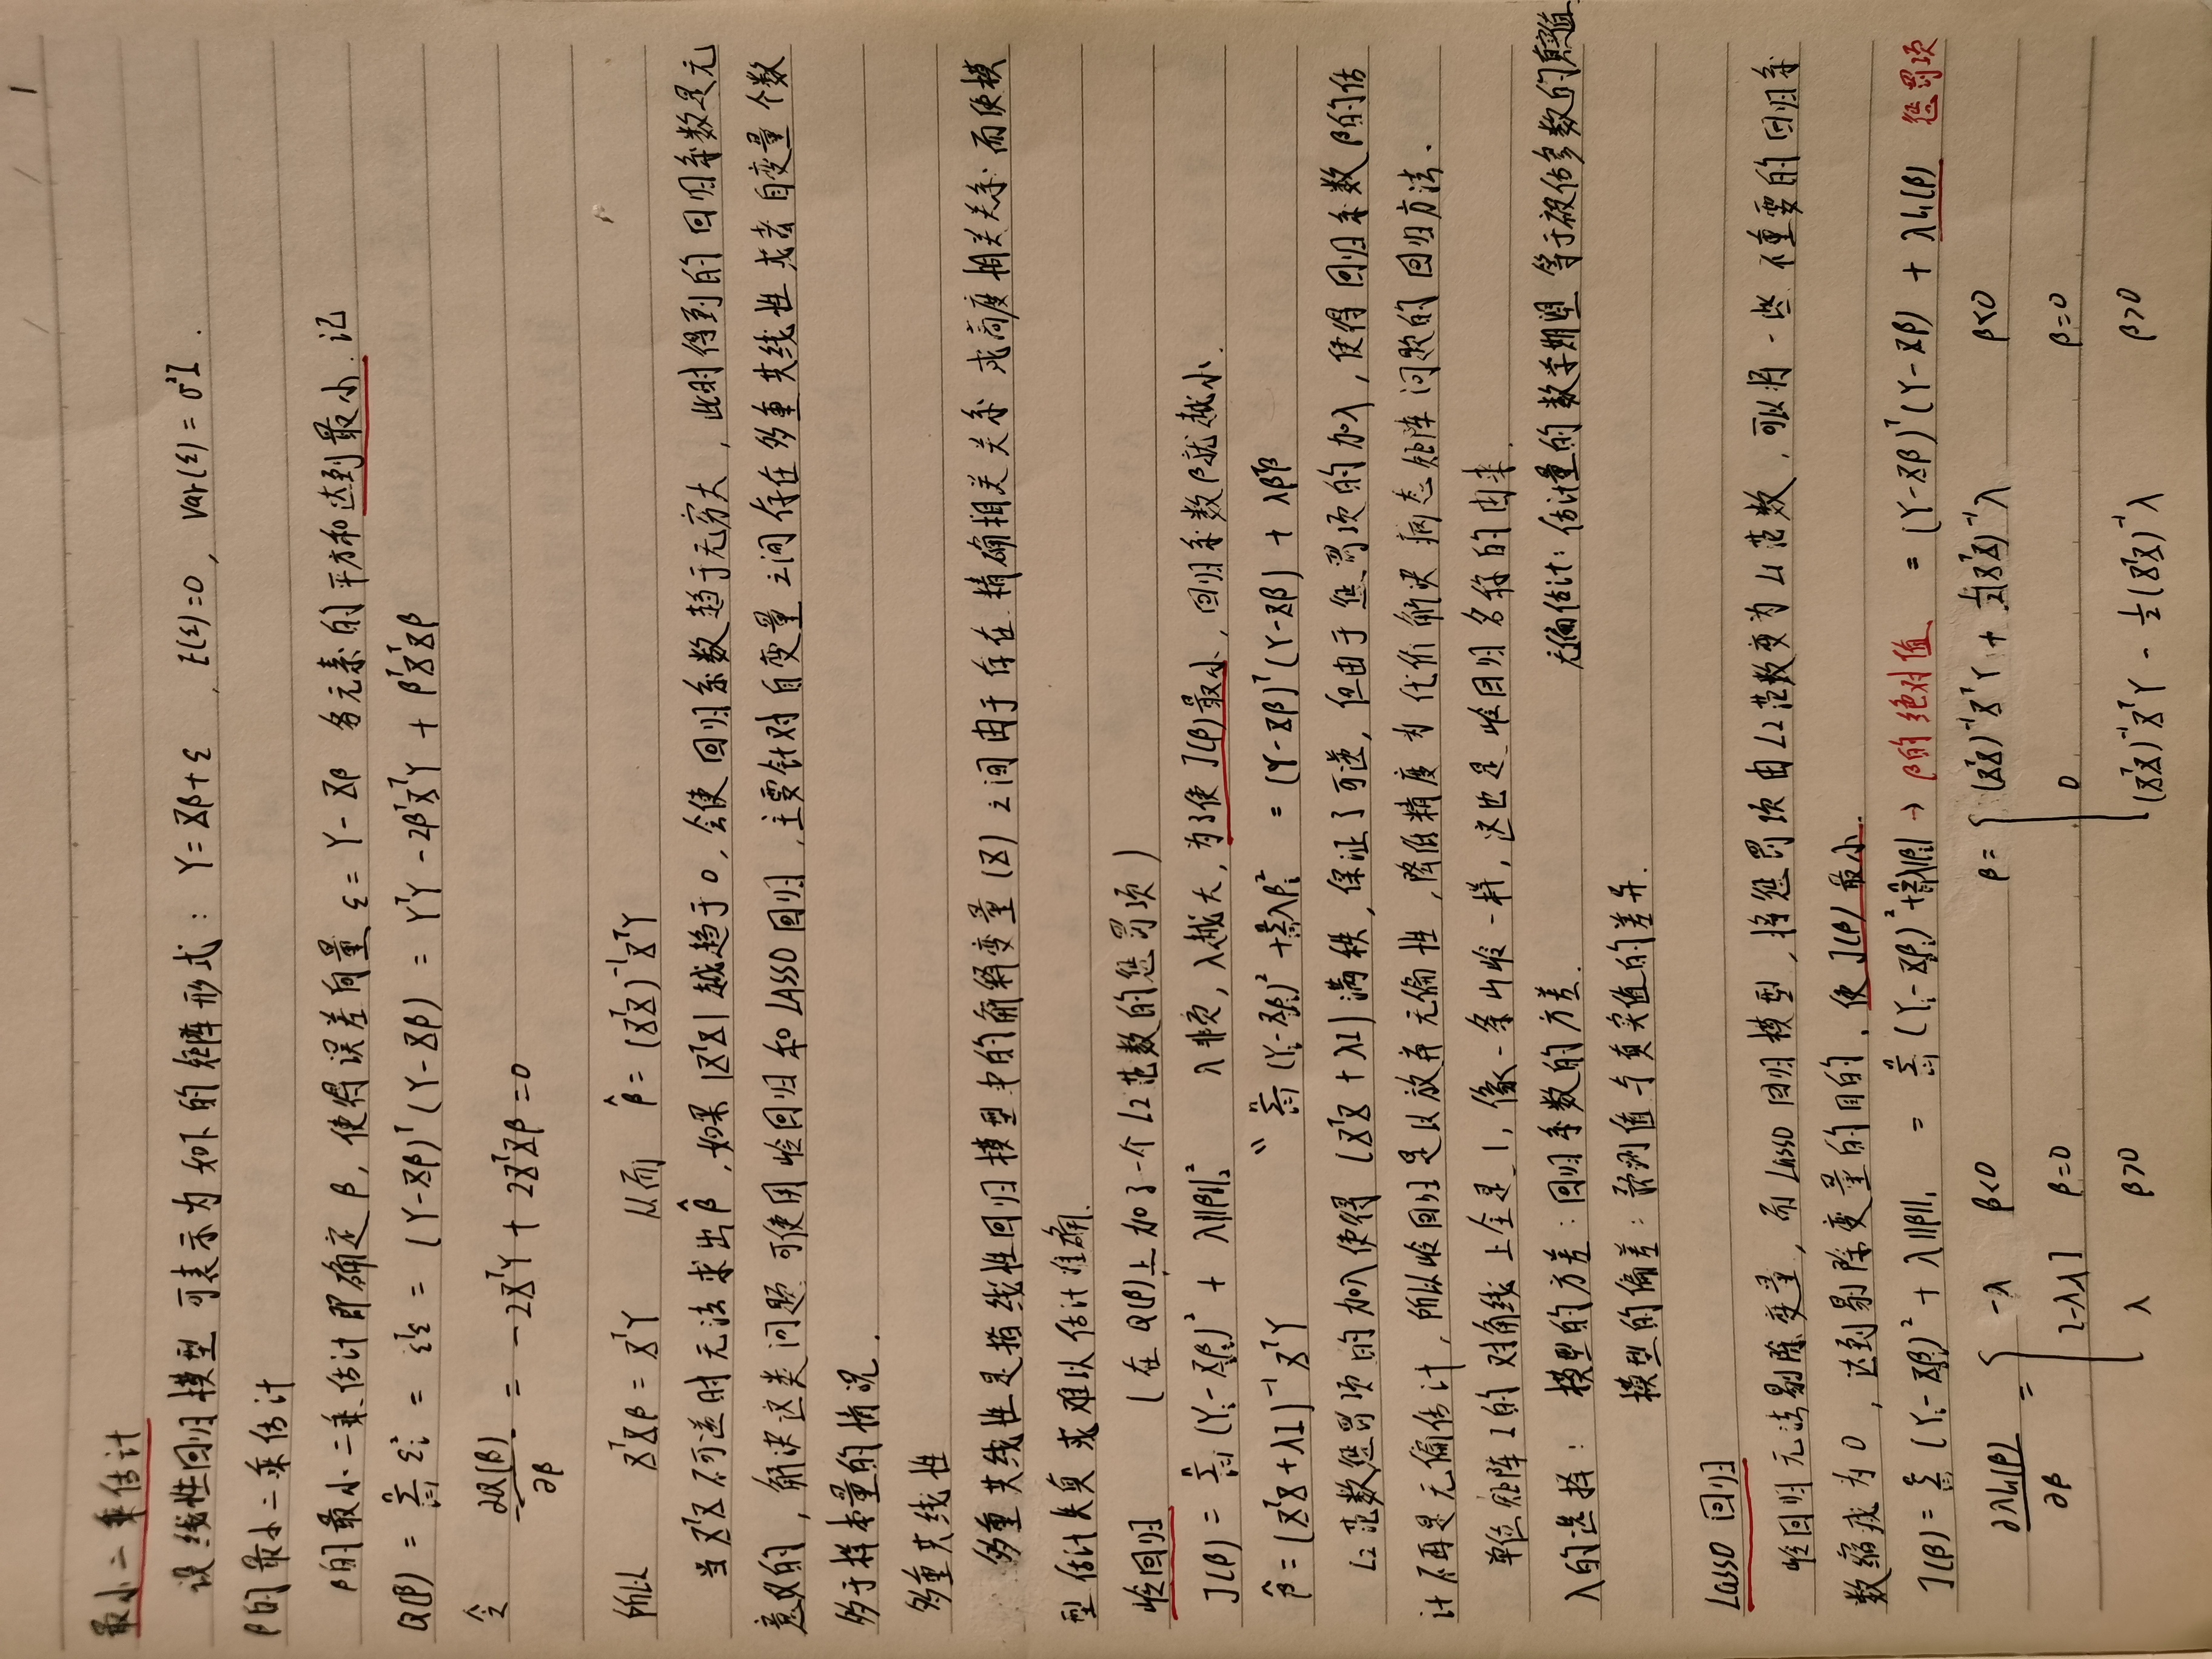 最小二乘估计
设线性回归模型可表示为如下的矩阵形式: Y=Xβ+ε , E(ε)=0, Var(ε)=σ²I .
β的最小二乘估计
β的最小二乘估计即确定β, 使得误差向量 ε=Y-Xβ 各元素的平方和达到最小. 记
Q(β) = Σᵢ₌₁ⁿ εᵢ² = εᵀε = (Y-Xβ)ᵀ(Y-Xβ) = YᵀY - 2βᵀXᵀY + βᵀXᵀXβ
令 ∂Q(β)/∂β = -2XᵀY + 2XᵀXβ = 0
所以 XᵀXβ = XᵀY 从而 β̂ = (XᵀX)⁻¹XᵀY
当XᵀX不可逆时无法求出β̂, 如果|XᵀX|越趋于0, 会使回归系数趋于无穷大, 此时得到的回归系数是无
意义的, 解决这类问题可使用岭回归和LASSO回归, 主要针对自变量之间存在多重共线性或者自变量个数
多于样本量的情况.
多重共线性
多重共线性是指线性回归模型中的解释变量(X)之间由于存在精确相关关系或高度相关关系而使模
型估计失真或难以估计准确.
岭回归 (在Q(β)上加了一个L2范数的惩罚项)
J(β) = Σᵢ₌₁ⁿ (Yᵢ-Xβᵢ)² + λ||β||₂² λ非负, λ越大, 为了使J(β)最小, 回归系数β就越小.
β̂ = (XᵀX+λI)⁻¹XᵀY " Σᵢ₌₁ⁿ (Yᵢ-Xβᵢ)² + Σᵢ₌₁ⁿ λβᵢ² = (Y-Xβ)ᵀ(Y-Xβ) + λβᵀβ
L2范数惩罚项的加入使得(XᵀX+λI)满秩, 保证了可逆, 但由于惩罚项的加入, 使得回归系数β的估
计不再是无偏估计, 所以岭回归是以放弃无偏性, 降低精度为代价解决病态矩阵问题的回归方法.
单位矩阵I的对角线上全是1, 像一条山岭一样, 这也是岭回归名称的由来.
λ的选择: 模型的方差: 回归系数的方差. 无偏估计: 估计量的数学期望等于被估参数的真实值
模型的偏差: 预测值与真实值的差异.
Lasso回归
岭回归无法剔除变量, 而Lasso回归模型, 将惩罚项由L2范数变为L1范数, 可以将一些不重要的回归系
数缩减为0, 达到剔除变量的目的. 使J(β)最小.
J(β) = Σᵢ₌₁ⁿ (Yᵢ-Xβᵢ)² + λ||β||₁ = Σᵢ₌₁ⁿ (Yᵢ-Xβᵢ)² + Σᵢ₌₁ⁿ λ|βᵢ| → β的绝对值 = (Y-Xβ)ᵀ(Y-Xβ) + λL₁(β) 惩罚项
∂λL₁(β)/∂β = { -λ β<0 β = { (XᵀX)⁻¹XᵀY + ½(XᵀX)⁻¹λ β<0
[-λ,λ] β=0 0 β=0
λ β>0 (XᵀX)⁻¹XᵀY - ½(XᵀX)⁻¹λ β>0